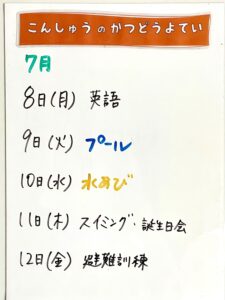 こんしゅうのかつどうよてい
7月
8日(月) 英語
9日(火) プール
10日(水) 水あび
11日(木) スイミング・誕生日会
12日(金) 避難訓練